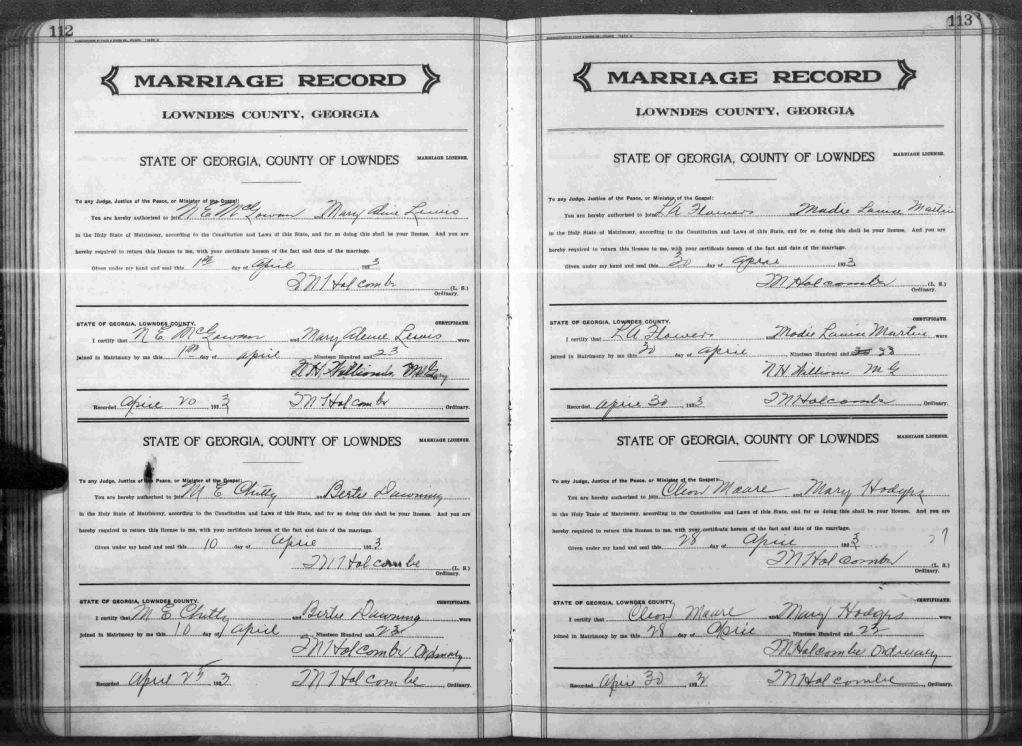 112
MARRIAGE RECORD
LOWNDES COUNTY, GEORGIA
STATE OF GEORGIA, COUNTY OF LOWNDES MARRIAGE LICENSE.
To any Judge, Justice of the Peace, or Minister of the Gospel:
You are hereby authorized to join N E McGowan Mary Lewis
in the Holy State of Matrimony, according to the Constitution and Laws of this State, and for so doing this shall be your license. And you are
hereby required to return this license to me, with your certificate hereon of the fact and date of the marriage.
Given under my hand and seal this 1st day of April 1923
T M Holcombe (L. S.)
Ordinary.
STATE OF GEORGIA, LOWNDES COUNTY. CERTIFICATE.
I certify that N. E. McGowan and Mary Lewis were
joined in Matrimony by me this 1st day of April Nineteen Hundred and 23
N H Williams M G
Recorded April 20, 1923 T M Holcombe Ordinary.
STATE OF GEORGIA, COUNTY OF LOWNDES MARRIAGE LICENSE.
To any Judge, Justice of the Peace, or Minister of the Gospel:
You are hereby authorized to join M E Chitty and Bertie Downing
in the Holy State of Matrimony, according to the Constitution and Laws of this State, and for so doing this shall be your license. And you are
hereby required to return this license to me, with your certificate hereon of the fact and date of the marriage.
Given under my hand and seal this 10 day of April 1923
T M Holcombe (L. S.)
Ordinary.
STATE OF GEORGIA, LOWNDES COUNTY. CERTIFICATE.
I certify that M E Chitty and Bertie Downing were
joined in Matrimony by me this 10 day of April Nineteen Hundred and 23
T M Holcombe Ordinary
Recorded April 25, 1923 T M Holcombe, Ordinary.
113
MARRIAGE RECORD
LOWNDES COUNTY, GEORGIA
STATE OF GEORGIA, COUNTY OF LOWNDES MARRIAGE LICENSE.
To any Judge, Justice of the Peace, or Minister of the Gospel:
You are hereby authorized to join L A Flowers Madie Louise Martin
in the Holy State of Matrimony, according to the Constitution and Laws of this State, and for so doing this shall be your license. And you are
hereby required to return this license to me, with your certificate hereon of the fact and date of the marriage.
Given under my hand and seal this 30 day of April 1923
T M Holcombe (L. S.)
Ordinary.
STATE OF GEORGIA, LOWNDES COUNTY. CERTIFICATE.
I certify that L A Flowers and Madie Louise Martin were
joined in Matrimony by me this 30 day of April, Nineteen Hundred and 23
N H Williams M G
Recorded April 30, 1923 T M Holcombe Ordinary.
STATE OF GEORGIA, COUNTY OF LOWNDES MARRIAGE LICENSE.
To any Judge, Justice of the Peace, or Minister of the Gospel:
You are hereby authorized to join Cleon Moore and Mary Hodges
in the Holy State of Matrimony, according to the Constitution and Laws of this State, and for so doing this shall be your license. And you are
hereby required to return this license to me, with your certificate hereon of the fact and date of the marriage.
Given under my hand and seal this 28 day of April 1923
T M Holcombe (L. S.)
Ordinary.
STATE OF GEORGIA, LOWNDES COUNTY. CERTIFICATE.
I certify that Cleon Moore and Mary Hodges were
joined in Matrimony by me this 28 day of April, Nineteen Hundred and 23
T M Holcombe Ordinary
Recorded April 30, 1923 T M Holcombe, Ordinary.